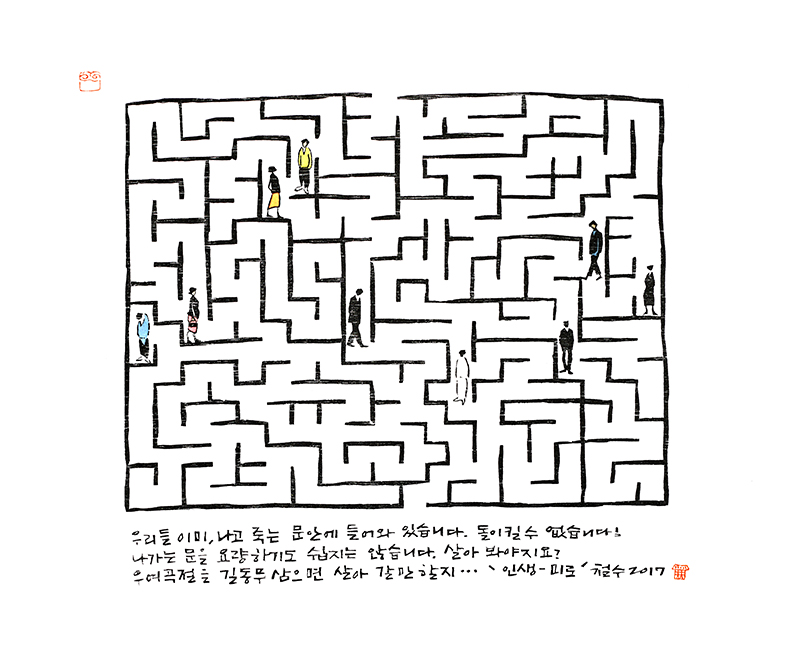 우리들 이미, 나고 죽는 문안에 들어와 있습니다. 돌이킬 수 없습니다!
나가는 문을 요량하기도 쉽지는 않습니다. 살아 봐야지요?
우여곡절을 길동무 삼으면 살아 갈 만 할지… '인생-미로' 철수 2017